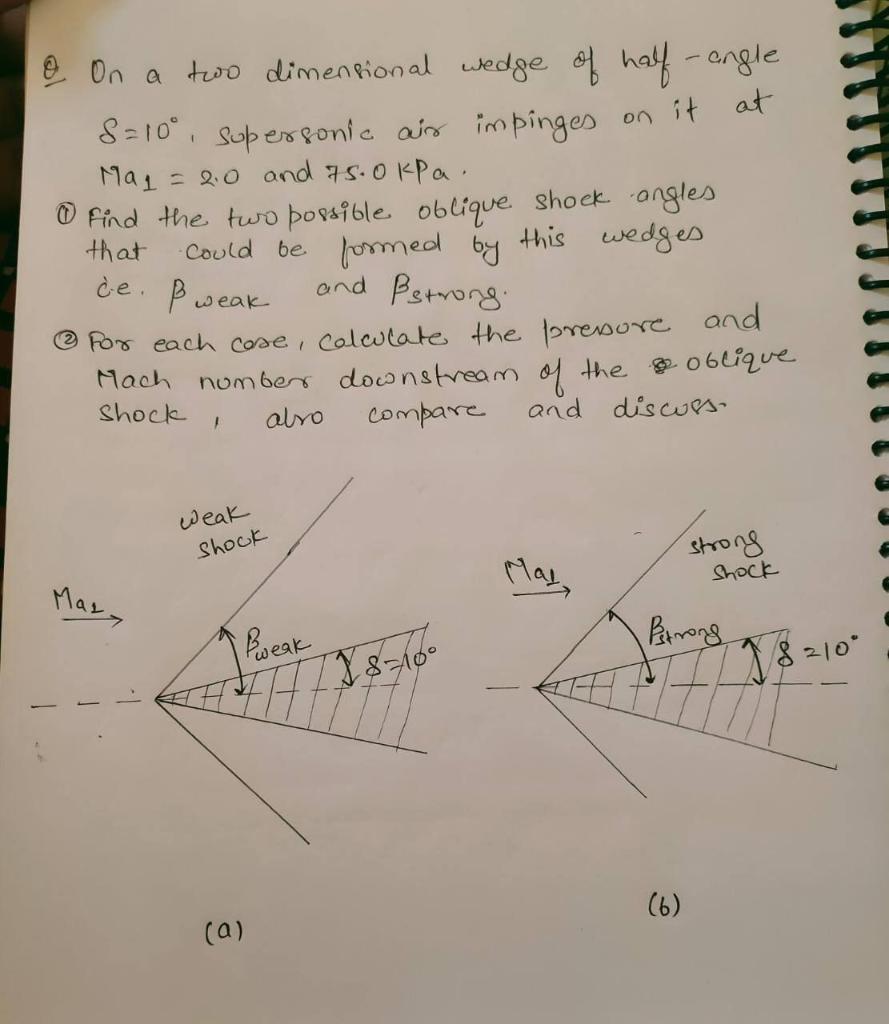 Q On a two dimensional wedge of half-angle
δ=10°, supersonic air impinges on it at
Ma1 = 2.0 and 75.0 KPa.
① Find the two possible oblique shock angles
that could be formed by this wedges
i.e. β weak and βstrong.
② For each case, calculate the pressure and
Mach number downstream of the oblique
shock, also compare and discuss.
weak
shock
Ma1
βweak
δ=10°
(a)
strong
shock
Ma1
βstrong
δ=10°
(b)